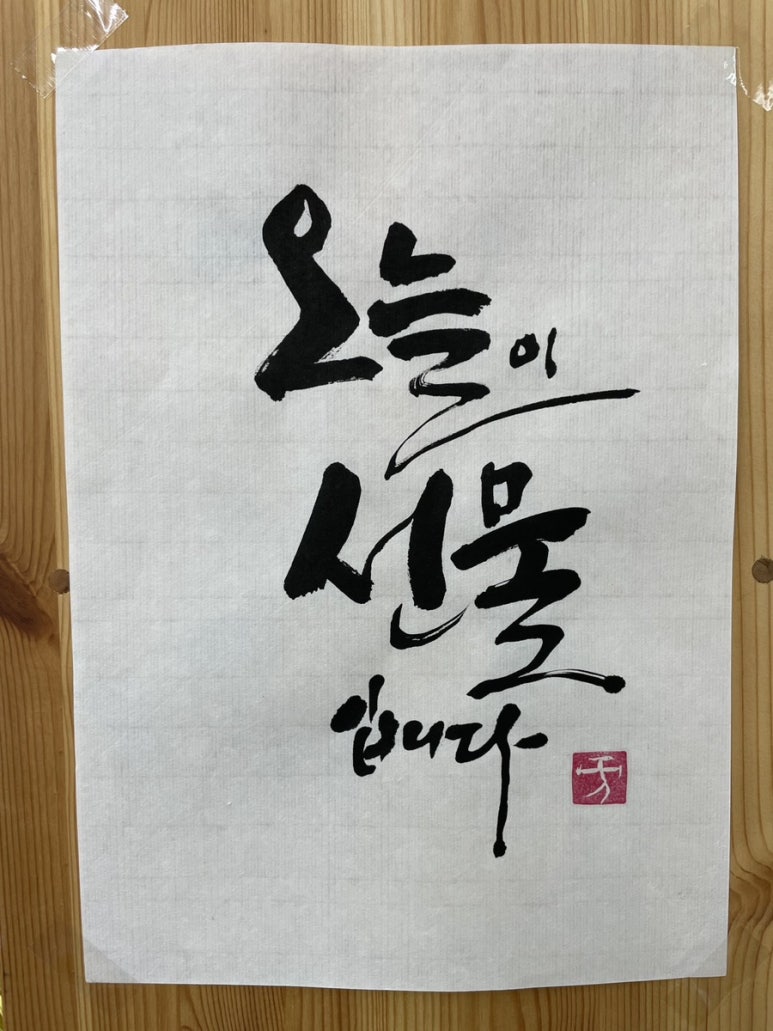 오늘이
선물
입니다